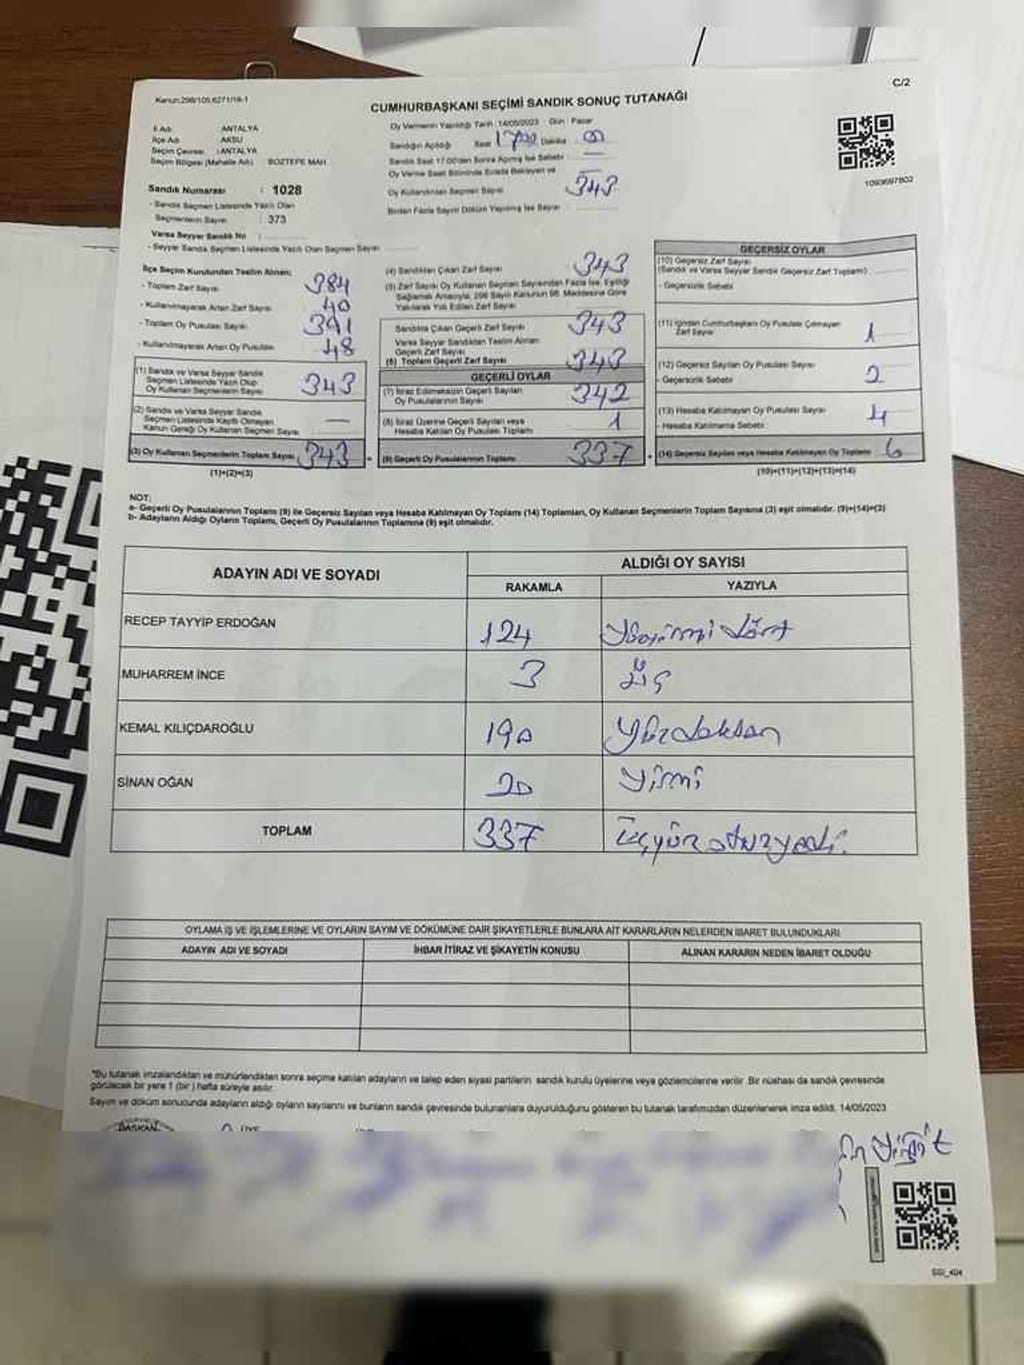 Kanun:298/105,6271/18-1
C/2
CUMHURBAŞKANI SEÇİMİ SANDIK SONUÇ TUTANAĞI
İl Adı : ANTALYA
İlçe Adı : AKSU
Seçim Çevresi : ANTALYA
Seçim Bölgesi (Mahalle Adı) BOZTEPE MAH.
Sandık Numarası : 1028
- Sandık Seçmen Listesinde Yazılı Olan
Seçmenlerin Sayısı : 373
Varsa Seyyar Sandık No :
- Seyyar Sandık Seçmen Listesinde Yazılı Olan Seçmen Sayısı
Oy Vermenin Yapıldığı Tarih : 14/05/2023 Gün : Pazar
Sandığın Açıldığı Saat 1700 Dakika 00
Sandık Saat 17.00'den Sonra Açılmış İse Sebebi
Oy Verme Saati Bitiminde Sırada Bekleyen ve
Oy Kullandırılan Seçmen Sayısı 343
Birden Fazla Sayım Döküm Yapılmış İse Sayısı
1093697802
İlçe Seçim Kurulundan Teslim Alınan;
- Toplam Zarf Sayısı 384
- Kullanılmayarak Artan Zarf Sayısı 40
- Toplam Oy Pusulası Sayısı 391
- Kullanılmayarak Artan Oy Pusulası 48
(1) Sandık ve Varsa Seyyar Sandık
Seçmen Listesinde Yazılı Olup
Oy Kullanan Seçmenlerin Sayısı 343
(2) Sandık ve Varsa Seyyar Sandık
Seçmen Listesinde Kayıtlı Olmayan
Kanun Gereği Oy Kullanan Seçmen Sayısı —
(3) Oy Kullanan Seçmenlerin Toplam Sayısı 343
(1)+(2)=(3)
(4) Sandıktan Çıkan Zarf Sayısı 343
(5) Zarf Sayısı Oy Kullanan Seçmen Sayısından Fazla İse, Eşitliği
Sağlamak Amacıyla, 298 Sayılı Kanunun 98. Maddesine Göre
Yakılarak Yok Edilen Zarf Sayısı
Sandıkta Çıkan Geçerli Zarf Sayısı 343
Varsa Seyyar Sandıktan Teslim Alınan
Geçerli Zarf Sayısı
(6) Toplam Geçerli Zarf Sayısı 343
GEÇERLİ OYLAR
(7) İtiraz Edilmeksizin Geçerli Sayılan
Oy Pusulalarının Sayısı 342
(8) İtiraz Üzerine Geçerli Sayılan veya
Hesaba Katılan Oy Pusulası Toplamı 1
(9) Geçerli Oy Pusulalarının Toplamı 337
GEÇERSİZ OYLAR
(10) Geçersiz Zarf Sayısı
(Sandık ve Varsa Seyyar Sandık Geçersiz Zarf Toplamı)
- Geçersizlik Sebebi
(11) İçinden Cumhurbaşkanı Oy Pusulası Çıkmayan
Zarf Sayısı 1
(12) Geçersiz Sayılan Oy Pusulası Sayısı 2
- Geçersizlik Sebebi
(13) Hesaba Katılmayan Oy Pusulası Sayısı 4
- Hesaba Katılmama Sebebi
(14) Geçersiz Sayılan veya Hesaba Katılmayan Oy Toplamı 6
(10)+(11)+(12)+(13)=(14)
NOT:
a- Geçerli Oy Pusulalarının Toplamı (9) ile Geçersiz Sayılan veya Hesaba Katılmayan Oy Toplamı (14) Toplamları, Oy Kullanan Seçmenlerin Toplam Sayısına (3) eşit olmalıdır. (9)+(14)=(3)
b- Adayların Aldığı Oyların Toplamı, Geçerli Oy Pusulalarının Toplamına (9) eşit olmalıdır.
ADAYIN ADI VE SOYADI
ALDIĞI OY SAYISI
RAKAMLA YAZIYLA
RECEP TAYYİP ERDOĞAN 124 Yüzyirmi dört
MUHARREM İNCE 3 üç
KEMAL KILIÇDAROĞLU 190 Yüzdoksan
SİNAN OĞAN 20 Yirmi
TOPLAM 337 üçyüz otuzyedi.
OYLAMA İŞ VE İŞLEMLERİNE VE OYLARIN SAYIM VE DÖKÜMÜNE DAİR ŞİKAYETLERLE BUNLARA AİT KARARLARIN NELERDEN İBARET BULUNDUKLARI
ADAYIN ADI VE SOYADI İHBAR İTİRAZ VE ŞİKAYETİN KONUSU ALINAN KARARIN NEDEN İBARET OLDUĞU
"Bu tutanak imzalandıktan ve mühürlendikten sonra seçime katılan adayların ve talep eden siyasi partilerin sandık kurulu üyelerine veya gözlemcilerine verilir .Bir nüshası da sandık çevresinde
görülecek bir yere 1 (bir ) hafta süreyle asılır.
Sayım ve döküm sonucunda adayların aldığı oyların sayılarını ve bunların sandık çevresinde bulunanlara duyurulduğunu gösteren bu tutanak tarafımızdan düzenlenerek imza edildi. 14/05/2023
BAŞKAN ÜYE
Yiğit
SSI_404